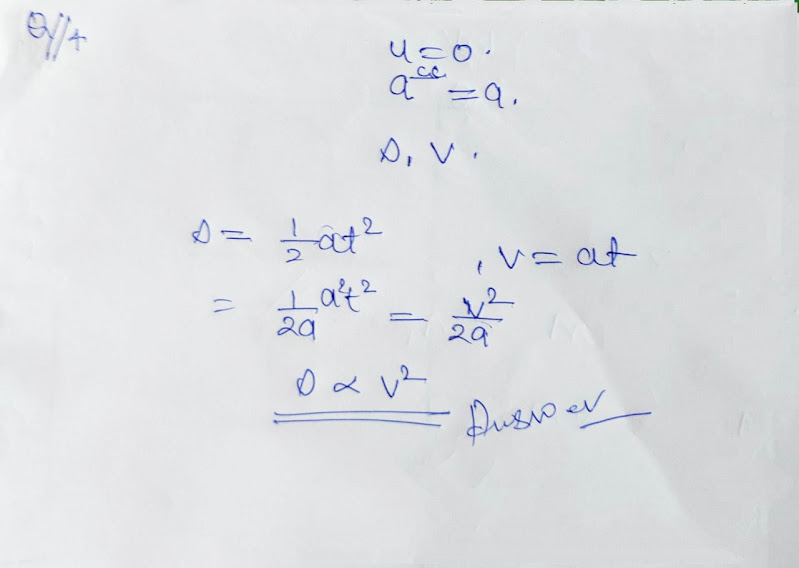 Q//4
u = 0.
acc = a.
s, v.
s = 1/2 at², v = at
= 1/2a a²t² = v²/2a
s ∝ v² Answer